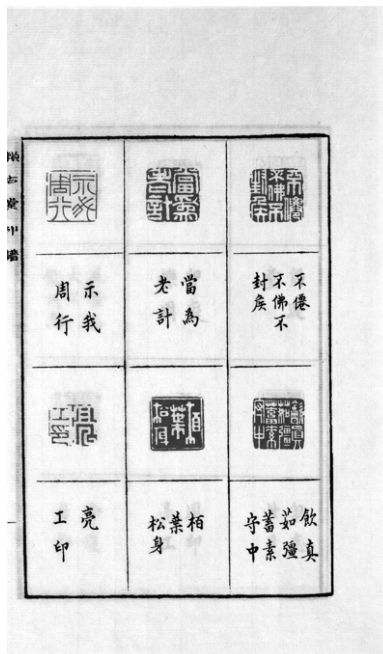 不僊
不佛不
封矦
當為
老計
示我
周行
飲真
茹彊
蓄素
守中
栢
葉
松身
亮
工印